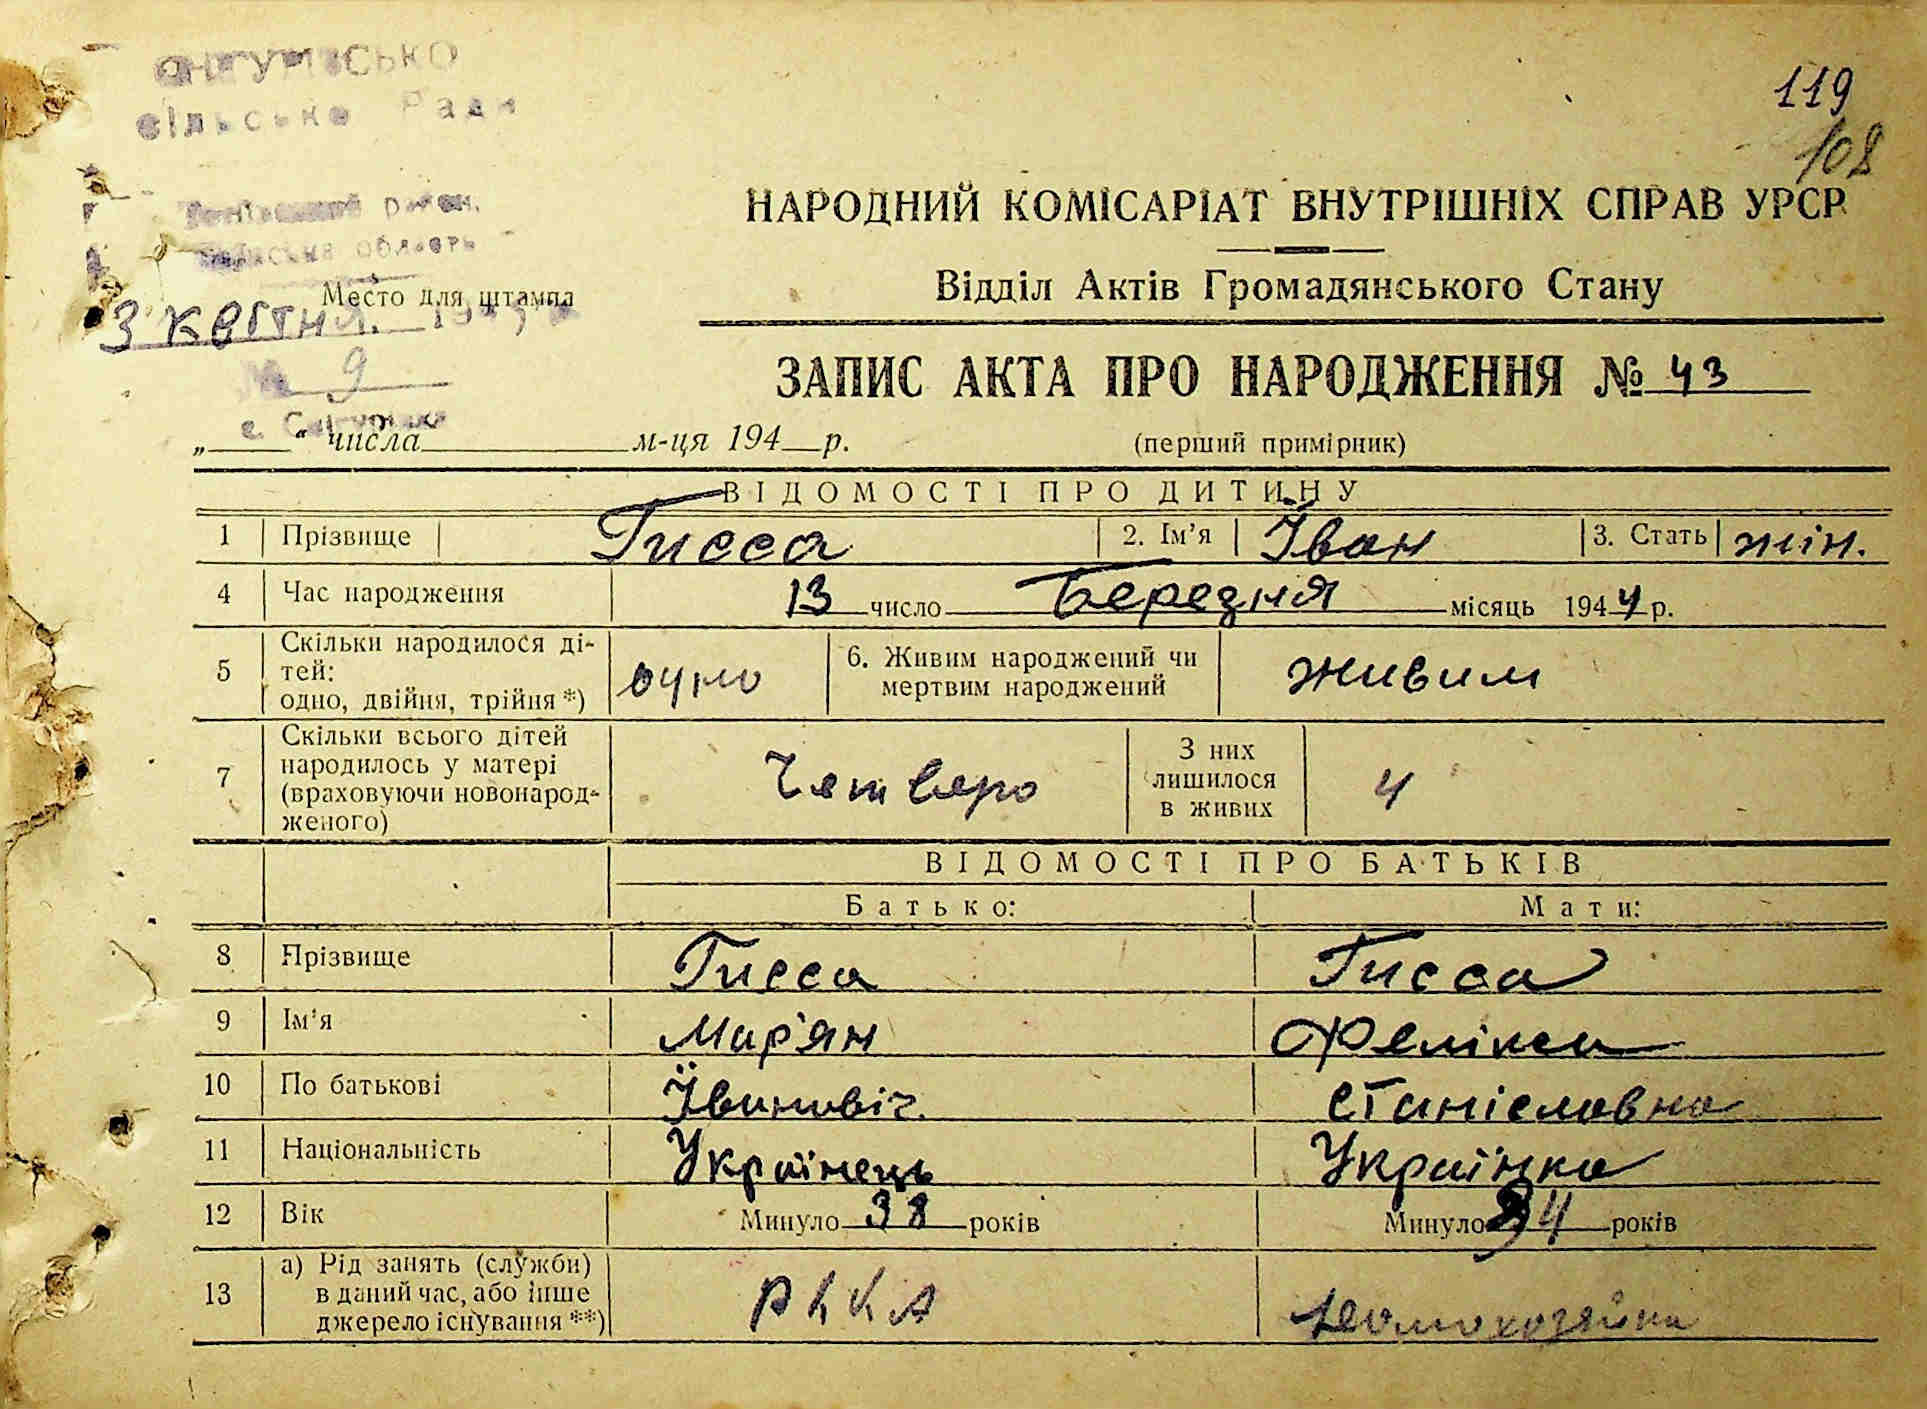 сільська Ради
район.
область
Место для штампа
3 квітня.
№ 9
119
108
НАРОДНИЙ КОМІСАРІАТ ВНУТРІШНІХ СПРАВ УРСР
Відділ Актів Громадянського Стану
ЗАПИС АКТА ПРО НАРОДЖЕННЯ № 43
„ “ числа м-ця 194 р. (перший примірник)
ВІДОМОСТІ ПРО ДИТИНУ
1 Прізвище Гисса 2. Ім’я Іван 3. Стать жін.
4 Час народження 13 число Березня місяць 1944 р.
5 Скільки народилося ді-
тей:
одно, двійня, трійня *) одно 6. Живим народжений чи
мертвим народжений живим
7 Скільки всього дітей
народилось у матері
(враховуючи новонарод-
женого) Четверо З них
лишилося
в живих 4
ВІДОМОСТІ ПРО БАТЬКІВ
Батько: Мати:
8 Прізвище Гисса Гисса
9 Ім’я Мар'ян Фелікса
10 По батькові Івановіч. Станіславна
11 Національність Українець Українка
12 Вік Минуло 38 років Минуло 34 років
13 а) Рід занять (служби)
в даний час, або інше
джерело існування **) РККА домохозяйка